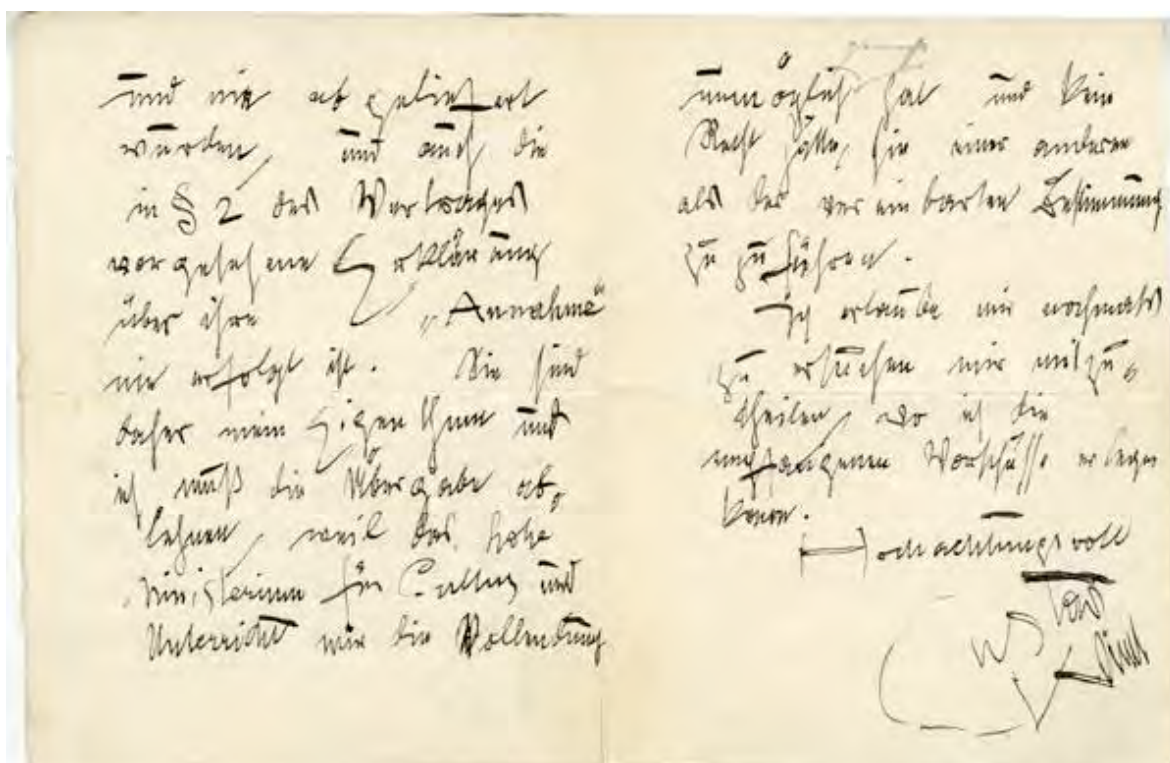 und nie abgeliefert
wurden, und auch die
in § 2 des Vertrages
vorgesehene Erklärung
über ihre „Annahme“
nie erfolgt ist. Sie sind
daher mein Eigenthum und
ich muß die Übergabe ab„
lehnen, weil das hohe
Ministerium für Cultus und
Unterricht mir die Vollendung
unmöglich hat und kein
Recht hätte, sie einer anderen
als der vereinbarten Bestimmung
zu zuführen.
Ich erlaube mir nochmals
zu ersuchen mir mitzu„
theilen, wo ich die
empfangenen Vorschüsse erlegen
kann.
Hochachtungsvoll